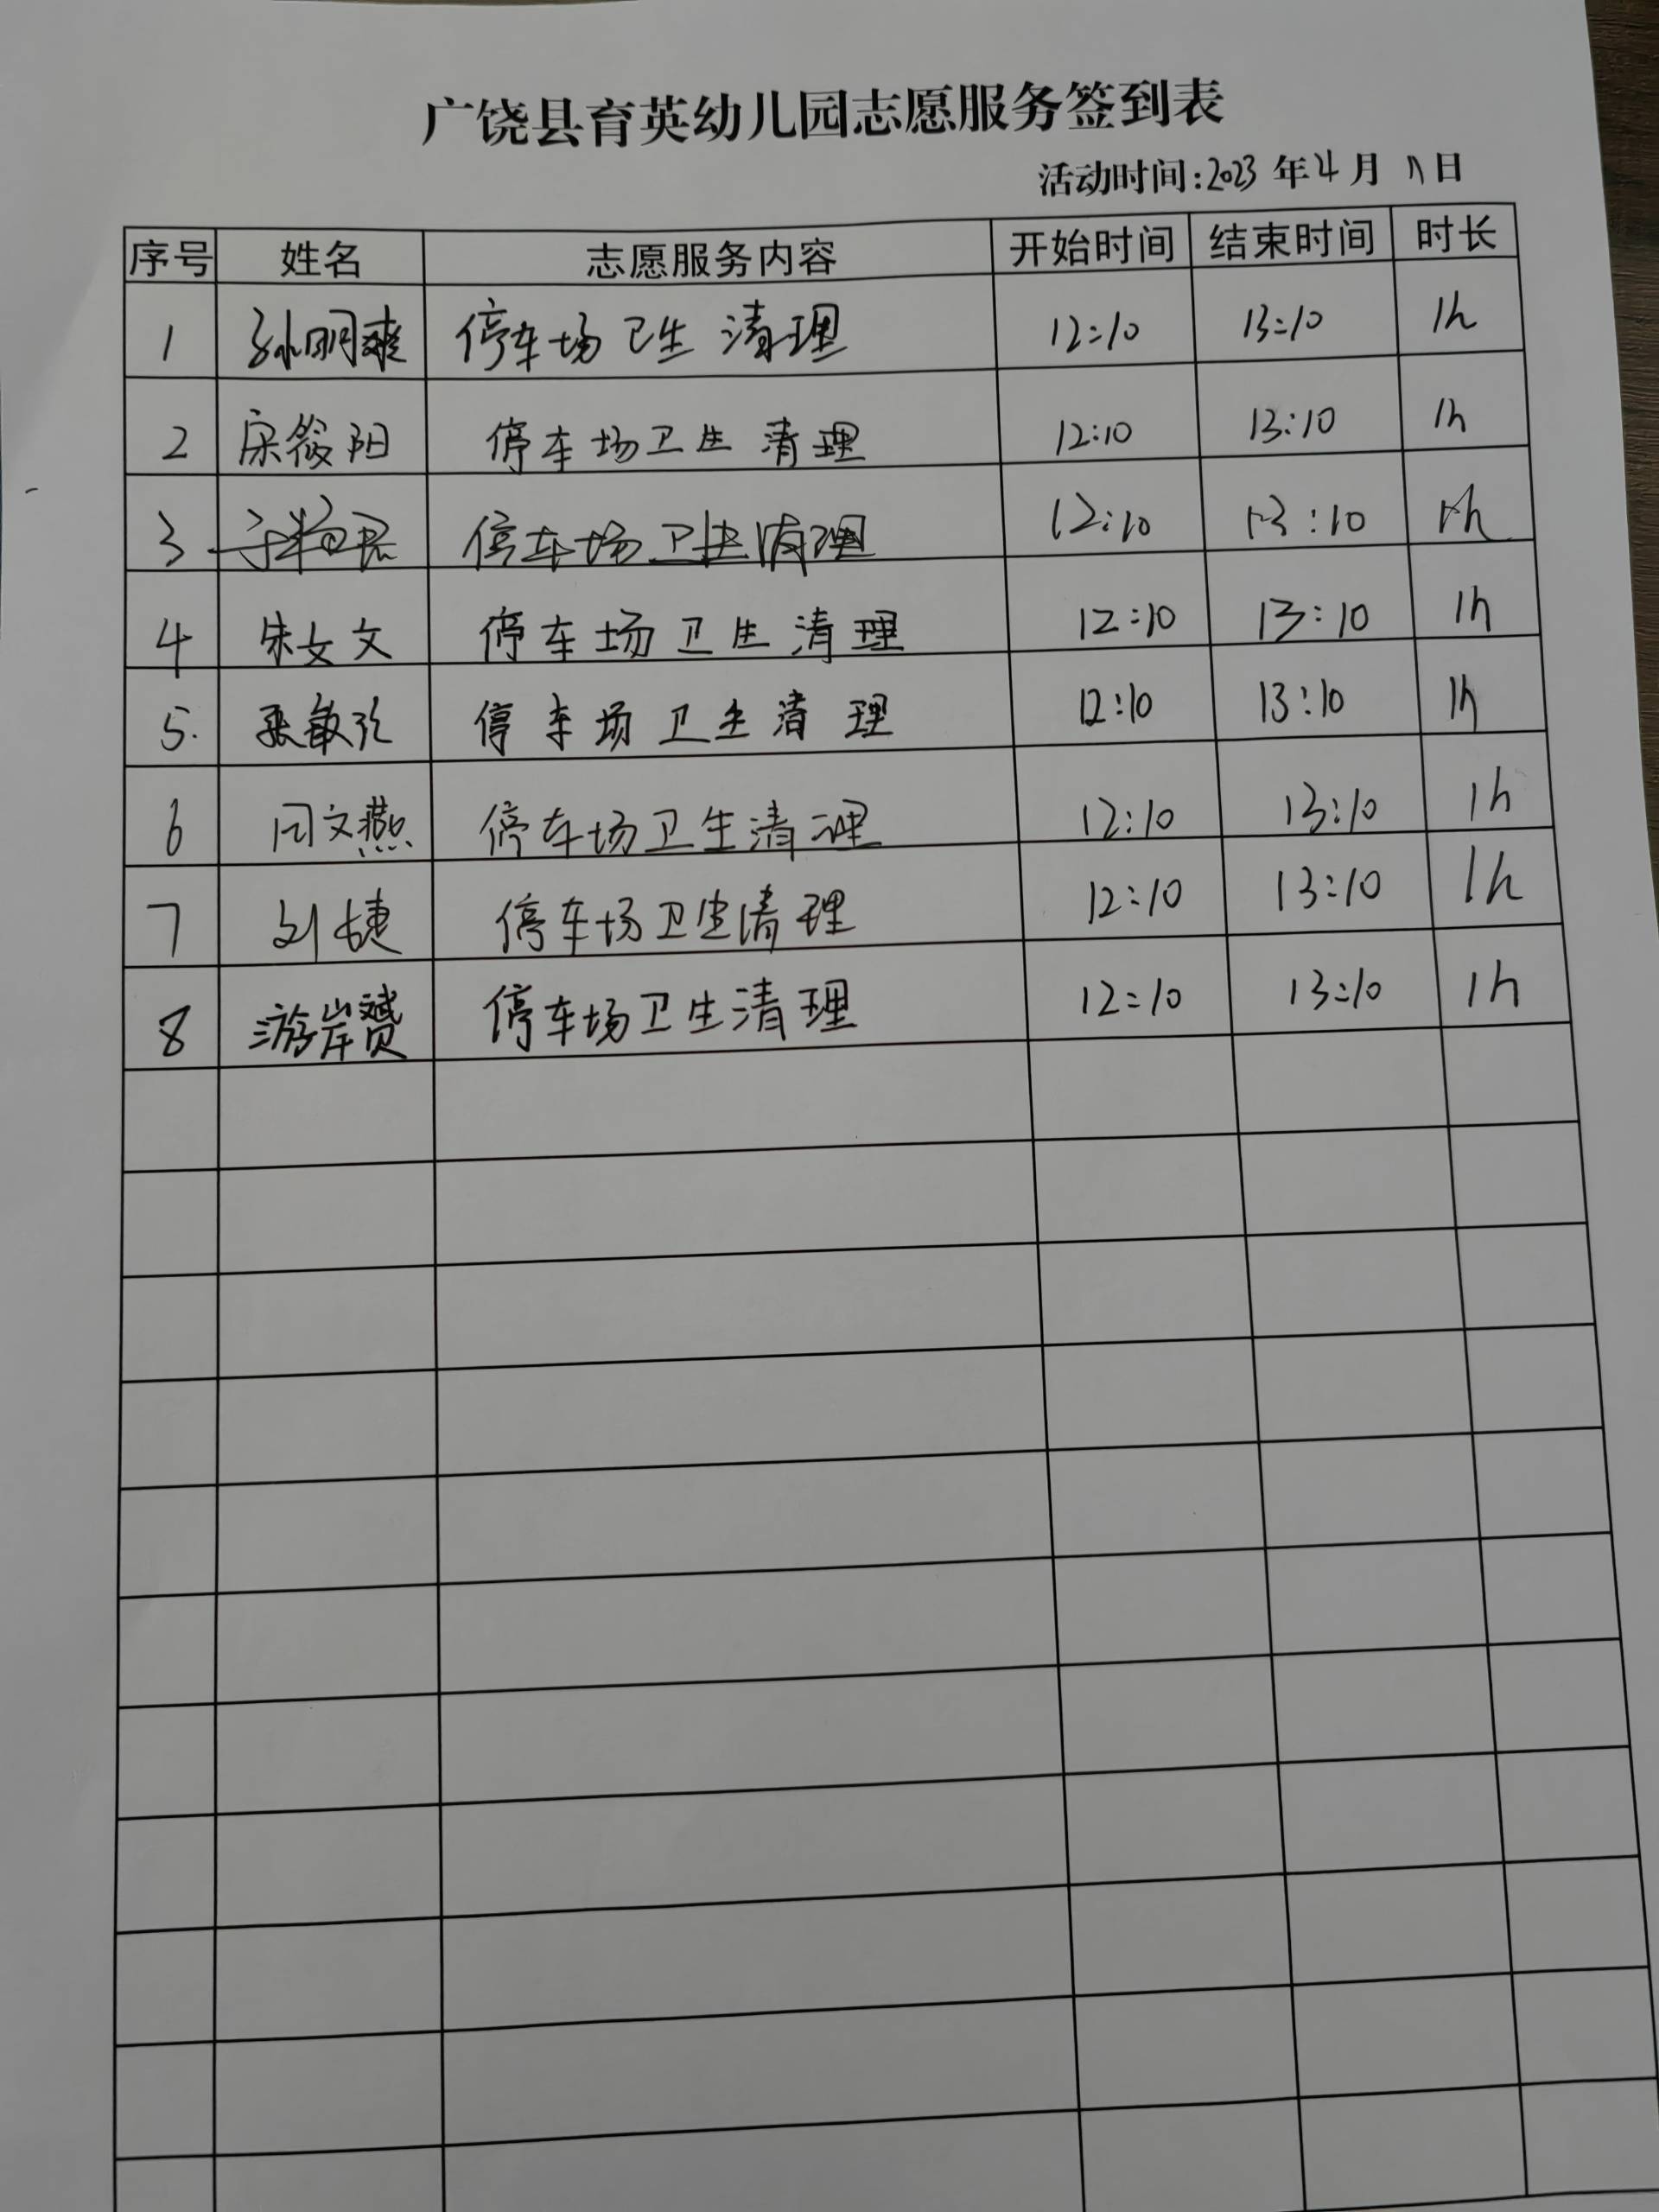 广饶县育英幼儿园志愿服务签到表
活动时间:2023 年 4 月 11 日
序号 姓名 志愿服务内容 开始时间 结束时间 时长
1 孙明爽 停车场卫生清理 12:10 13:10 1h
2 宋筱阳 停车场卫生清理 12:10 13:10 1h
3 停车场卫生清理 12:10 13:10 1h
4 朱文文 停车场卫生清理 12:10 13:10 1h
5. 张敏 停车场卫生清理 12:10 13:10 1h
6 闫文燕 停车场卫生清理 12:10 13:10 1h
7 刘婕 停车场卫生清理 12:10 13:10 1h
8 游岸赟 停车场卫生清理 12:10 13:10 1h